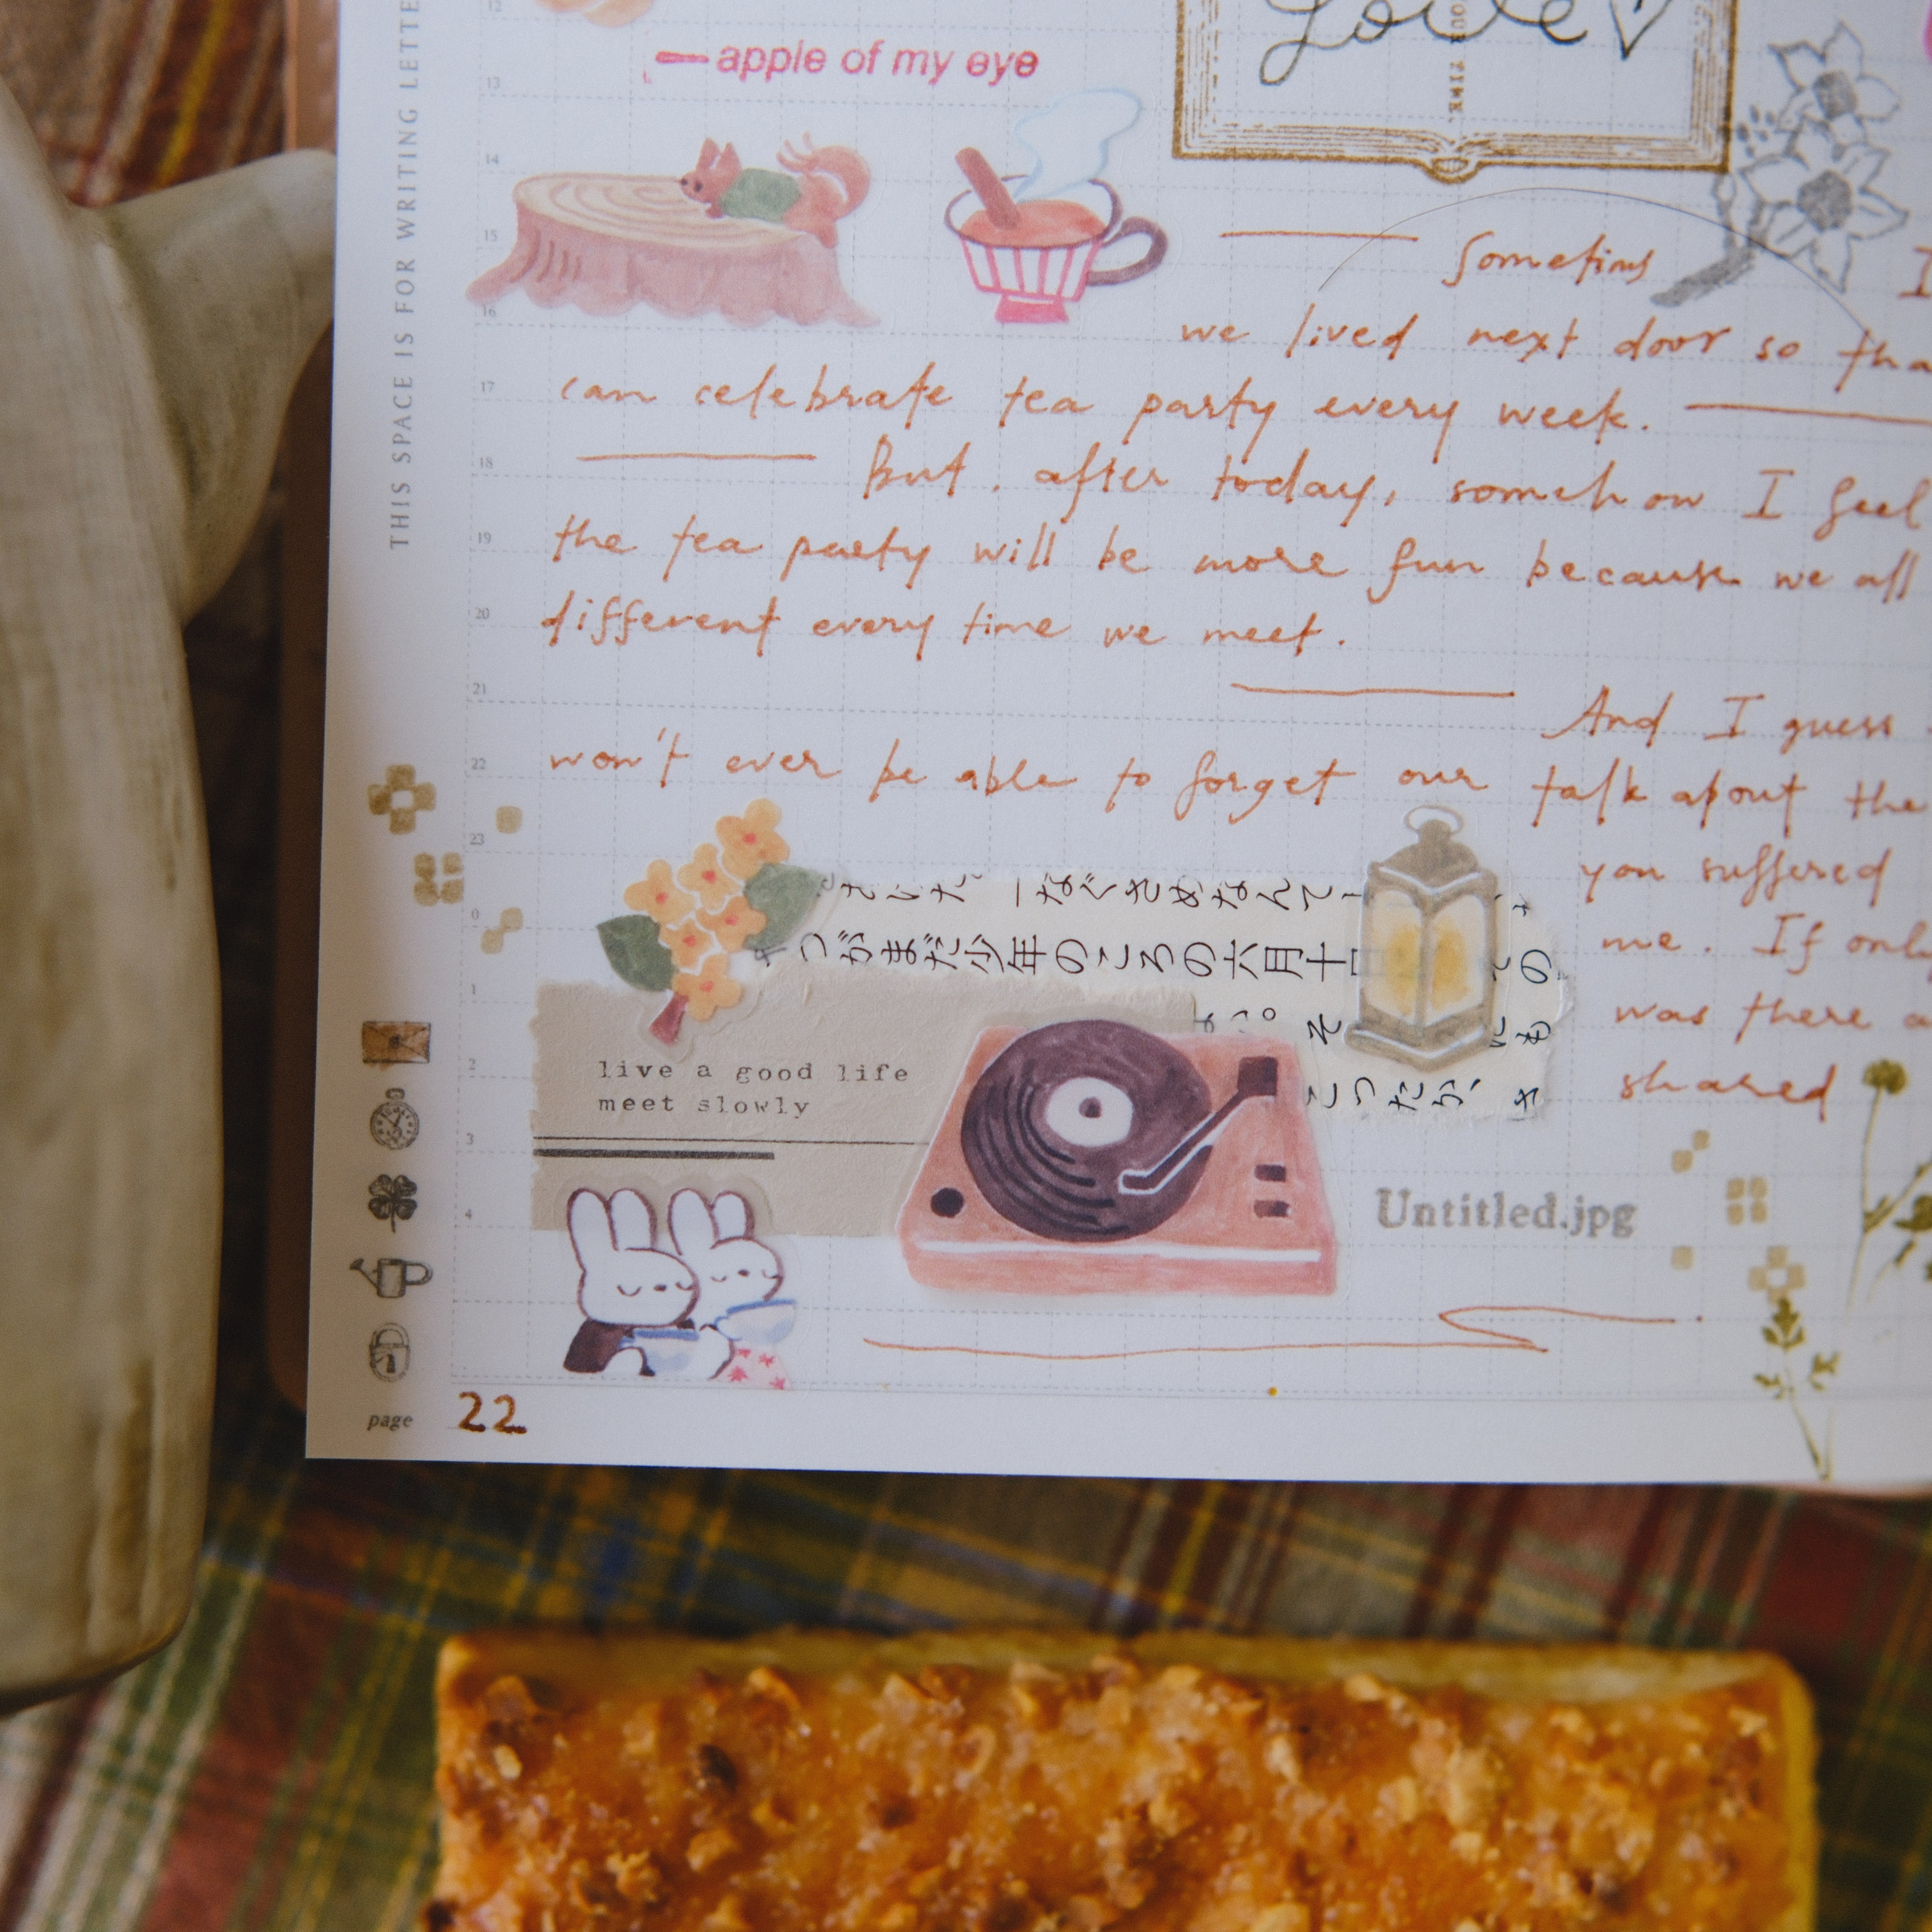 THIS SPACE IS FOR WRITING LETTE
love
OUR TIME.
12
apple of my eye
13
14
15
16
Sometims I
we lived next door so tha
17
can celebrate tea party every week.
18
But, after today, somehow I feel
19
the tea party will be more fun because we all
20
different every time we meet.
21
And I guess
22
won't ever be able to forget our talk about the
23
you suffered
0
me. If onl
1
was there a
2
shared
3
4
一なぐさめなんて
づがまだ少年のころの六月十
の
そ
も
こったが、
live a good life
meet slowly
Untitled.jpg
page 22